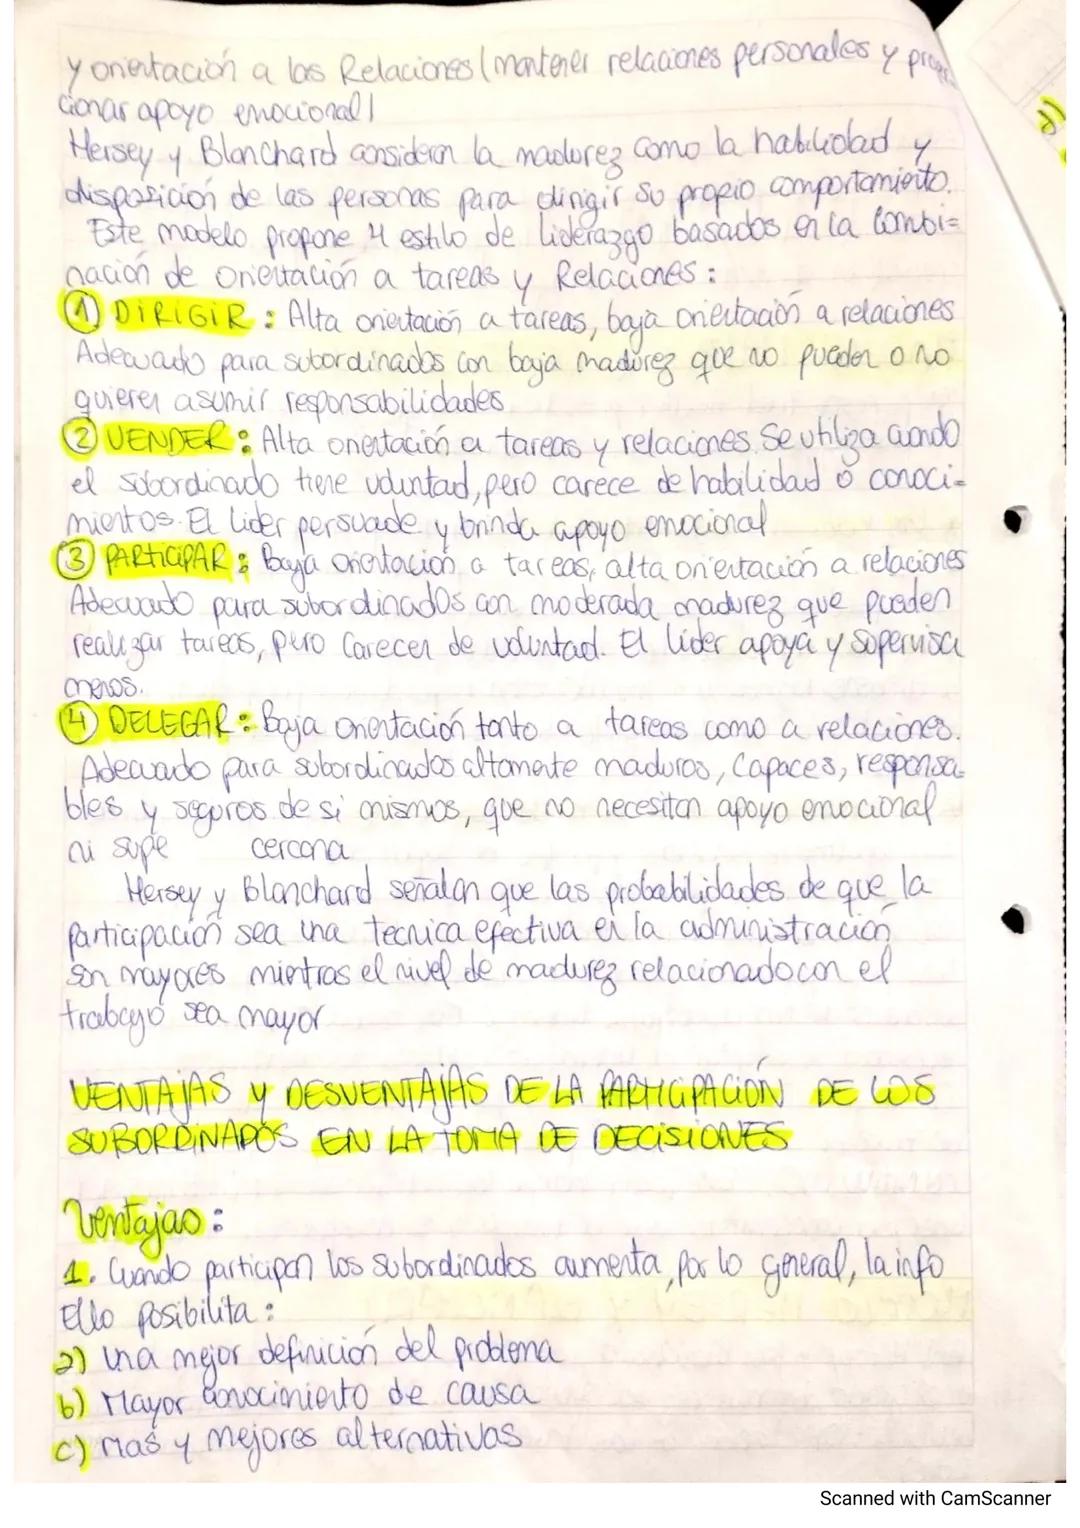 y orientación a las Relaciones (mantener relaciones personales y propor
cionar apoyo emocional)
Hersey y Blanchard consideran la madurez como la habilidad y
disposición de las personas para dirigir su propio comportamiento.
Este modelo propone 4 estilo de liderazgo basados en la combi=
nación de orientación a tareas y Relaciones:
① DIRIGIR: Alta orientación a tareas, baja orientación a relaciones
Adecuado para subordinados con baja madurez que no pueden o no
quieren asumir responsabilidades
② VENDER: Alta orientación a tareas y relaciones. Se utiliza cuando
el subordinado tiene voluntad, pero carece de habilidad o conoci=
mientos. El lider persuade y brinda apoyo emocional
③ PARTICIPAR: Baja orientación a tareas, alta orientación a relaciones
Adecuado para subordinados con moderada madurez que pueden
realizar tareas, pero carecen de voluntad. El lider apoya y supervisa
menos.
④ DELEGAR: Baja orientación tanto a tareas como a relaciones.
Adecuado para subordinados altamente maduros, capaces, responsa-
bles y seguros de si mismos, que no necesitan apoyo emocional
ni supe cercana
Hersey y Blanchard señalan que las probabilidades de que la
participación sea una tecnica efectiva en la administración
son mayores mientras el nivel de madurez relacionado con el
trabajo sea mayor
VENTAJAS y DESVENTAJAS DE LA PARTICIPACIÓN DE LOS
SUBORDINADOS EN LA TOMA DE DECISIONES
Ventajas:
1. Cuando participan los subordinados aumenta, por lo general, la info
Ello posibilita:
a) Una mejor definición del problema
b) Mayor conocimiento de causa
c) mas y mejores alternativas
Scanned with CamScanner